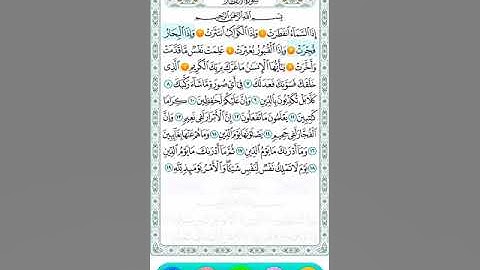 سورة الانفطار
بِسْمِ اللَّهِ الرَّحْمَٰنِ الرَّحِيمِ
إِذَا السَّمَاءُ انفَطَرَتْ ١ وَإِذَا الْكَوَاكِبُ انتَثَرَتْ ٢ وَإِذَا الْبِحَارُ
فُجِّرَتْ ٣ وَإِذَا الْقُبُورُ بُعْثِرَتْ ٤ عَلِمَتْ نَفْسٌ مَّا قَدَّمَتْ
وَأَخَّرَتْ ٥ يَا أَيُّهَا الْإِنسَانُ مَا غَرَّكَ بِرَبِّكَ الْكَرِيمِ ٦ الَّذِي
خَلَقَكَ فَسَوَّاكَ فَعَدَلَكَ ٧ فِي أَيِّ صُورَةٍ مَّا شَاءَ رَكَّبَكَ ٨
كَلَّا بَلْ تُكَذِّبُونَ بِالدِّينِ ٩ وَإِنَّ عَلَيْكُمْ لَحَافِظِينَ ١٠ كِرَامًا
كَاتِبِينَ ١١ يَعْلَمُونَ مَا تَفْعَلُونَ ١٢ إِنَّ الْأَبْرَارَ لَفِي نَعِيمٍ ١٣ وَإِنَّ
الْفُجَّارَ لَفِي جَحِيمٍ ١٤ يَصْلَوْنَهَا يَوْمَ الدِّينِ ١٥ وَمَا هُمْ عَنْهَا بِغَائِبِينَ
١٦ وَمَا أَدْرَاكَ مَا يَوْمُ الدِّينِ ١٧ ثُمَّ مَا أَدْرَاكَ مَا يَوْمُ الدِّينِ
١٨ يَوْمَ لَا تَمْلِكُ نَفْسٌ لِّنَفْسٍ شَيْئًا وَالْأَمْرُ يَوْمَئِذٍ لِّلَّهِ ١٩